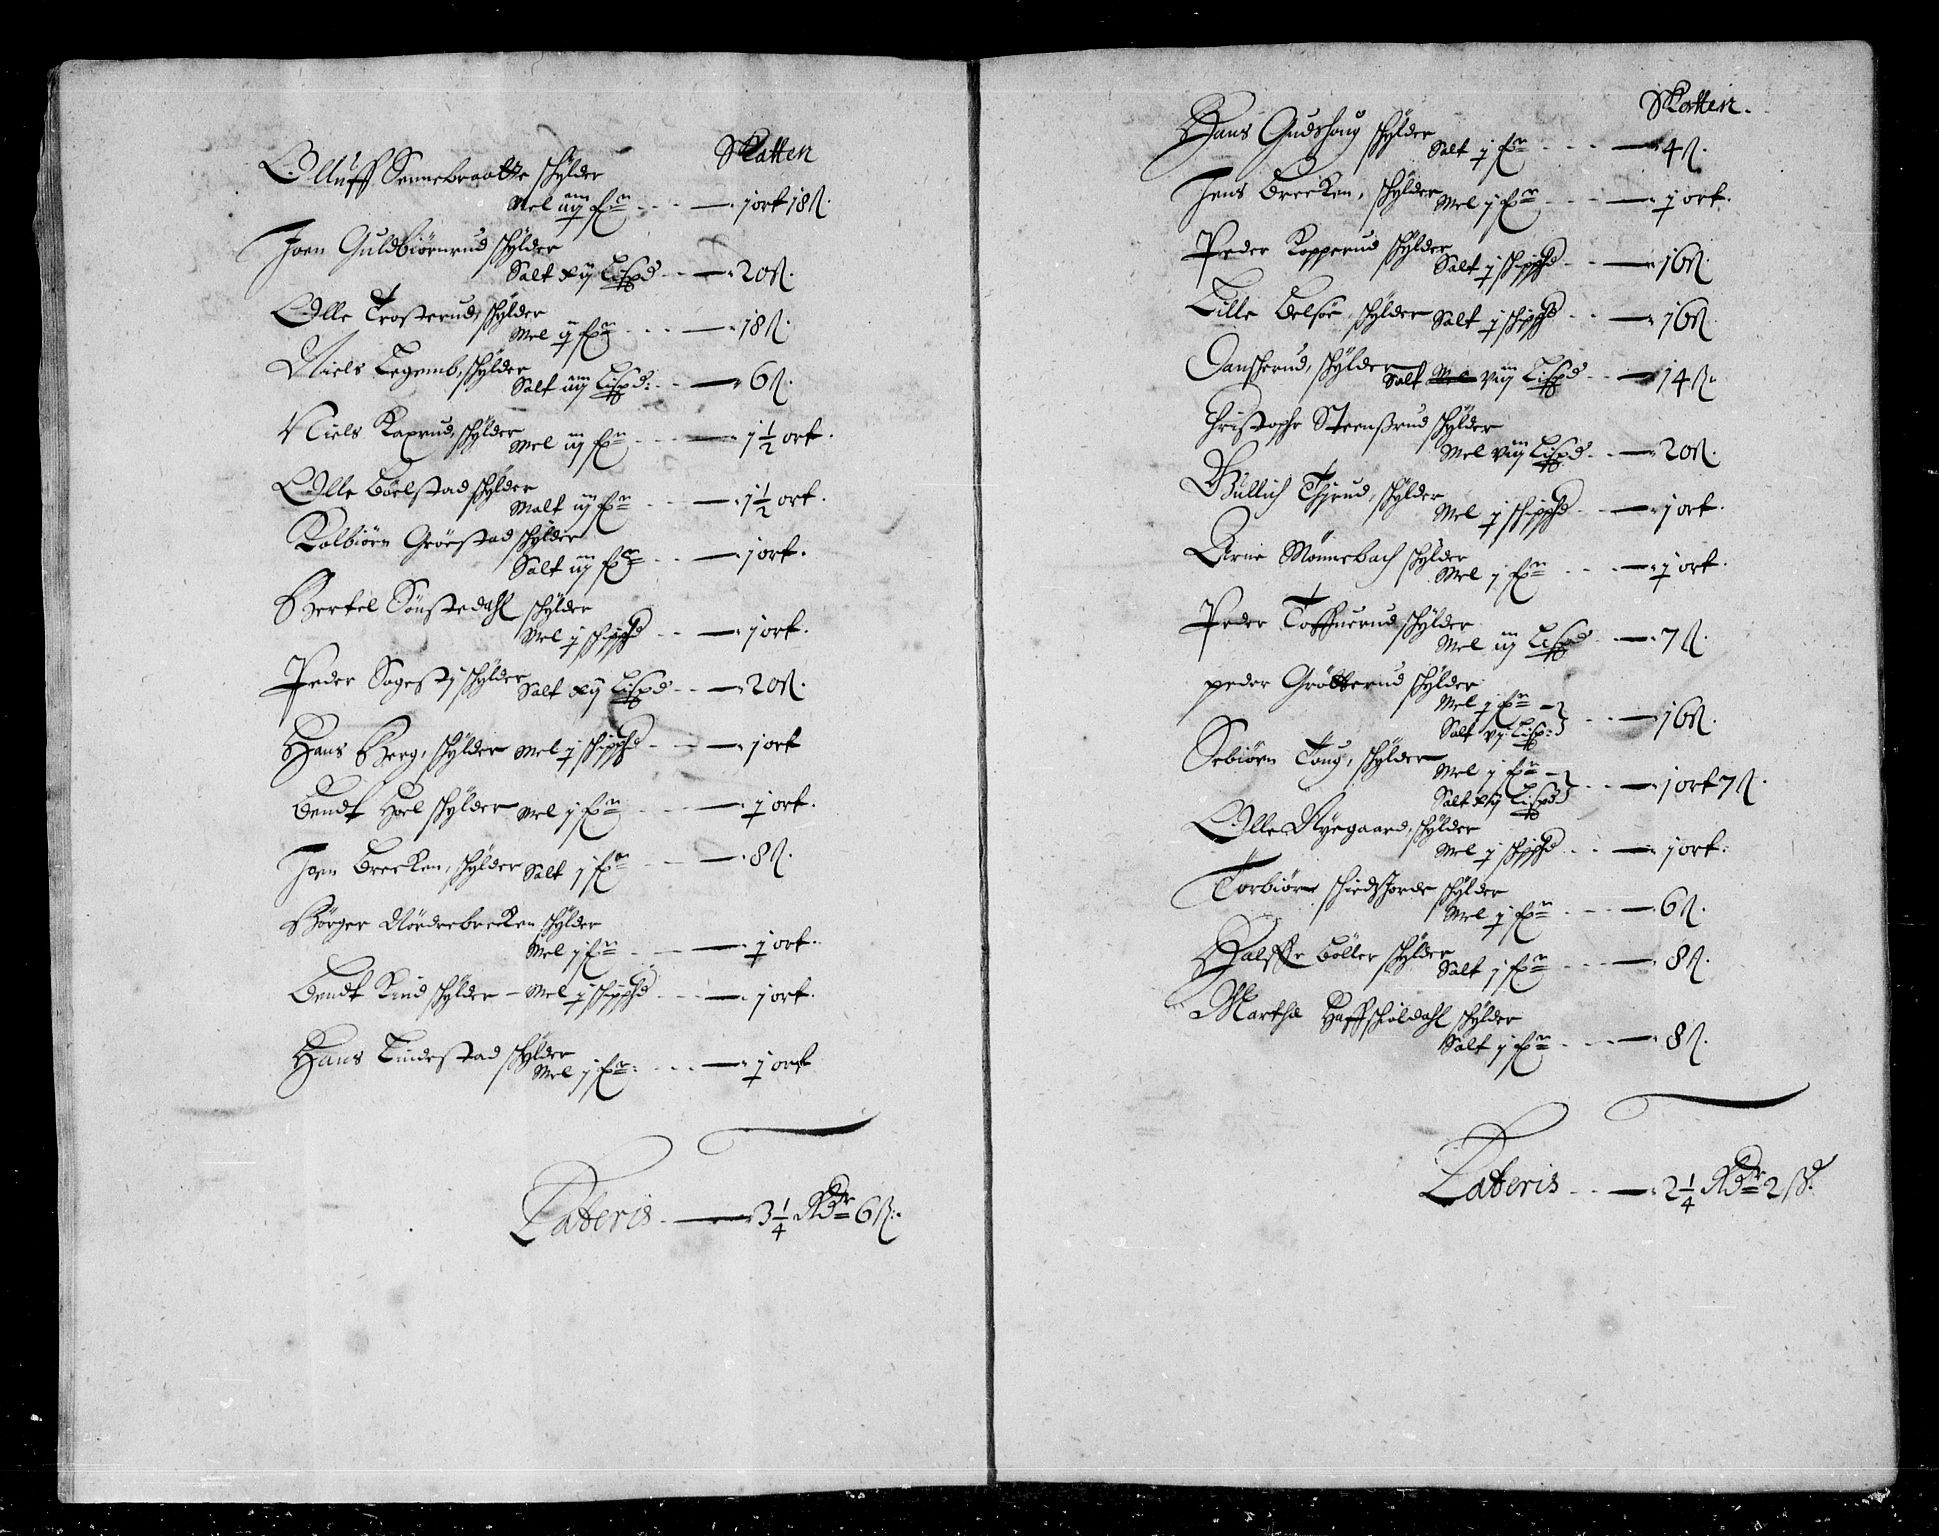 Skatten
Olluff Sennebraatte schylder
Mel iiij fr ——— 1 ort 18 ß.
Joen Guldbiørnrud schylder
Salt xij Lispd ——— 20 ß.
Olle Trosterud, schylder
Mel ij fr ——— 18 ß.
Niels Legemb, schylder
Salt iiij Lispd: ——— 6 ß.
Niels Kaxrud, schylder
Mel iij fr ——— 1½ ort.
Olle Bøelstad schylder
Malt iij fr ——— 1½ ort.
Kolbiørn Grøestad schylder
Salt iiij fr ——— 1 ort.
Bertel Sønstedahl schylder
Mel j schippd ——— 1 ort.
Peder Sogestj schylder
Salt xij Lispd ——— 20 ß.
Hans Berg, schylder Mel j schippd ——— 1 ort
Bendt Hoel schylder Mel j fr ——— 1 ort.
Joen Brecken, schylder Salt j fr ——— 8 ß.
Børger Nordrebrecken schylder
Mel j fr ——— 1 ort.
Bendt Rud schylder – Mel j schippd ——— 1 ort.
Hans Lindestad schylder
Mel j fr: ——— 1 ort
Lateris ——— 3¼ Rdr 6 ß.
Skatten.
Hans Gudshoug schylder
Salt j fr ——— 4 ß.
Jens Brecken, schylder
Mel j fr ——— 1 ort.
Peder Kopperud schylder
Salt j schippd ——— 16 ß.
Lille Belsøe, schylder Salt j schippd ——— 16 ß.
Danscherud, schylder
Salt Mel viij Lispd ——— 14 ß.
Christopher Steenßrud schylder
Mel viij Lispd ——— 20 ß.
Gullich Thjrud, schylder
Mel j schippd ——— 1 ort.
Arne Mønnebach schylder
Mel j fr ——— 1 ort.
Peder Toffuerud schylder
Mel iij Lispd ——— 7 ß.
peder Grøtterud schylder
Mel j fr
Salt vj Lisp: ——— 16 ß.
Sebiørn Toug, schylder
Mel j fr
Salt xij Lispd ——— 1 ort 7 ß.
Olle Nyegaard, schylder
Mel j schippd ——— 1 ort:
Torbiørn schiedsJorde schylder
Mel j fr ——— 6 ß.
Halffe Bøller schylder
Salt j fr ——— 8 ß.
Marthe Haffscholdahl schylder
Salt j fr ——— 8 ß.
Lateris ——— 2¼ Rdr 2 ß.